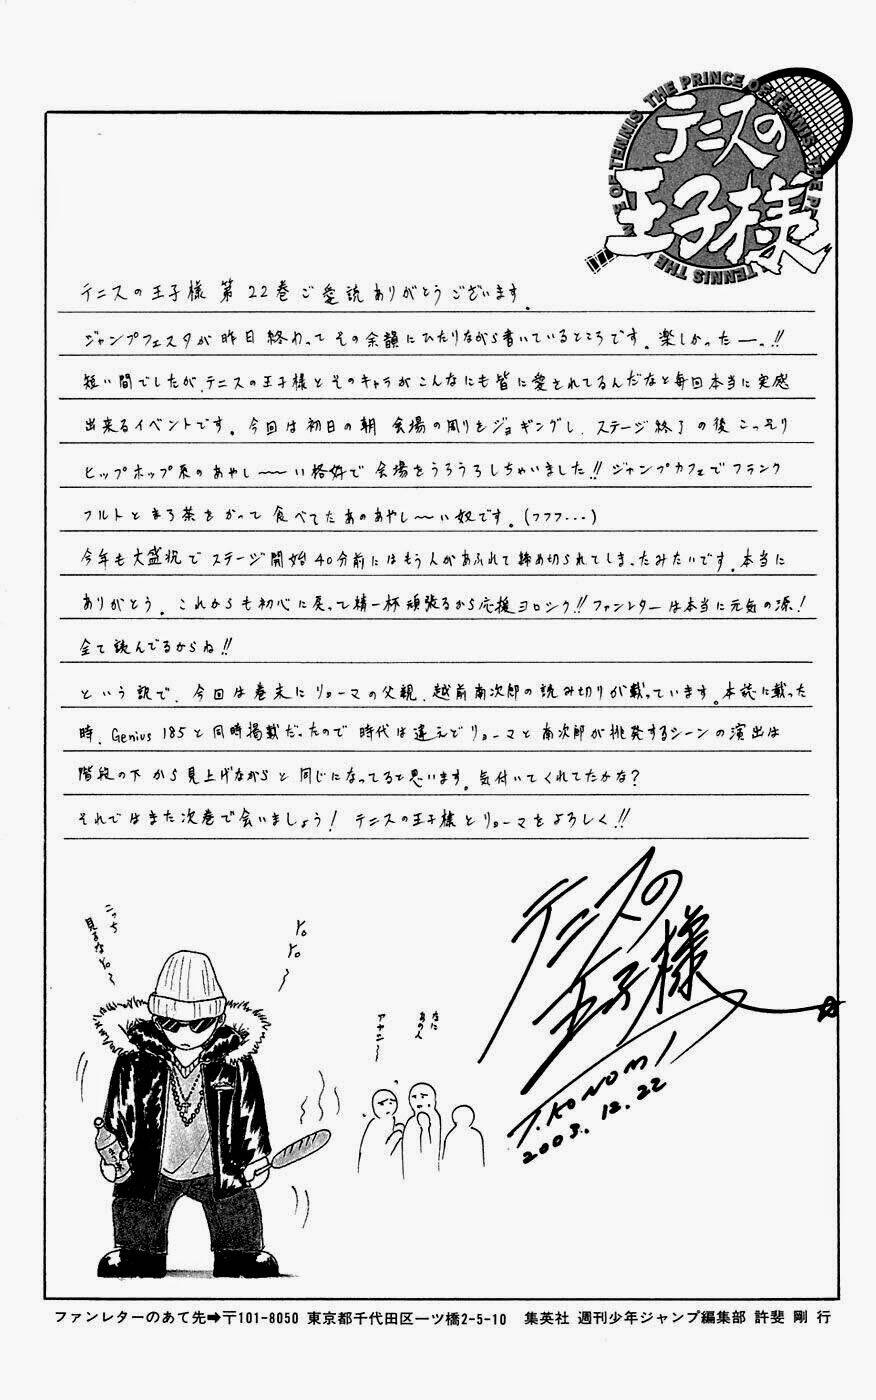 THE PRINCE OF TENNIS
テニスの
王子様
テニスの王子様 第22巻ご愛読ありがとうございます。
ジャンプフェスタが昨日終わってその余韻にひたりながら書いているところです。楽しかったーっ!!
短い間でしたが、テニスの王子様とそのキャラがこんなにも皆に愛されてるんだなと毎回本当に実感
出来るイベントです。今回は初日の朝 会場の周りをジョギングし、ステージ終了の後 こっそり
ヒップホップ系のあやし〜〜い格好で 会場をうろうろしちゃいました!! ジャンプカフェでフランク
フルトとまろ茶をかって 食べてたあのあやし〜い奴です。(フフフ…)
今年も大盛況で ステージ開始40分前にはもう人があふれて締め切られてしまったみたいです。本当に
ありがとう。これからも初心に戻って精一杯頑張るから応援ヨロシク!! ファンレターは本当に元気の源!
全て読んでるからね!!
という訳で、今回は巻末にリョーマの父親、越前南次郎の読み切りが載っています。本誌に載った
時、Genius 185と同時掲載だったので 時代は違えどリョーマと南次郎が挑発するシーンの演出は
階段の下から見上げながらと同じになってると思います。気付いてくれてたかな?
それではまた次巻で会いましょう! テニスの王子様とリョーマをよろしく!!
こっち
見るなYo。〜
Yo
Yo〜
なに
あの人
アヤシ〜
テニスの
王子様
T.KONOMI
2003.12.22
ファンレターのあて先➡〒101-8050 東京都千代田区一ツ橋2-5-10 集英社 週刊少年ジャンプ編集部 許斐 剛 行